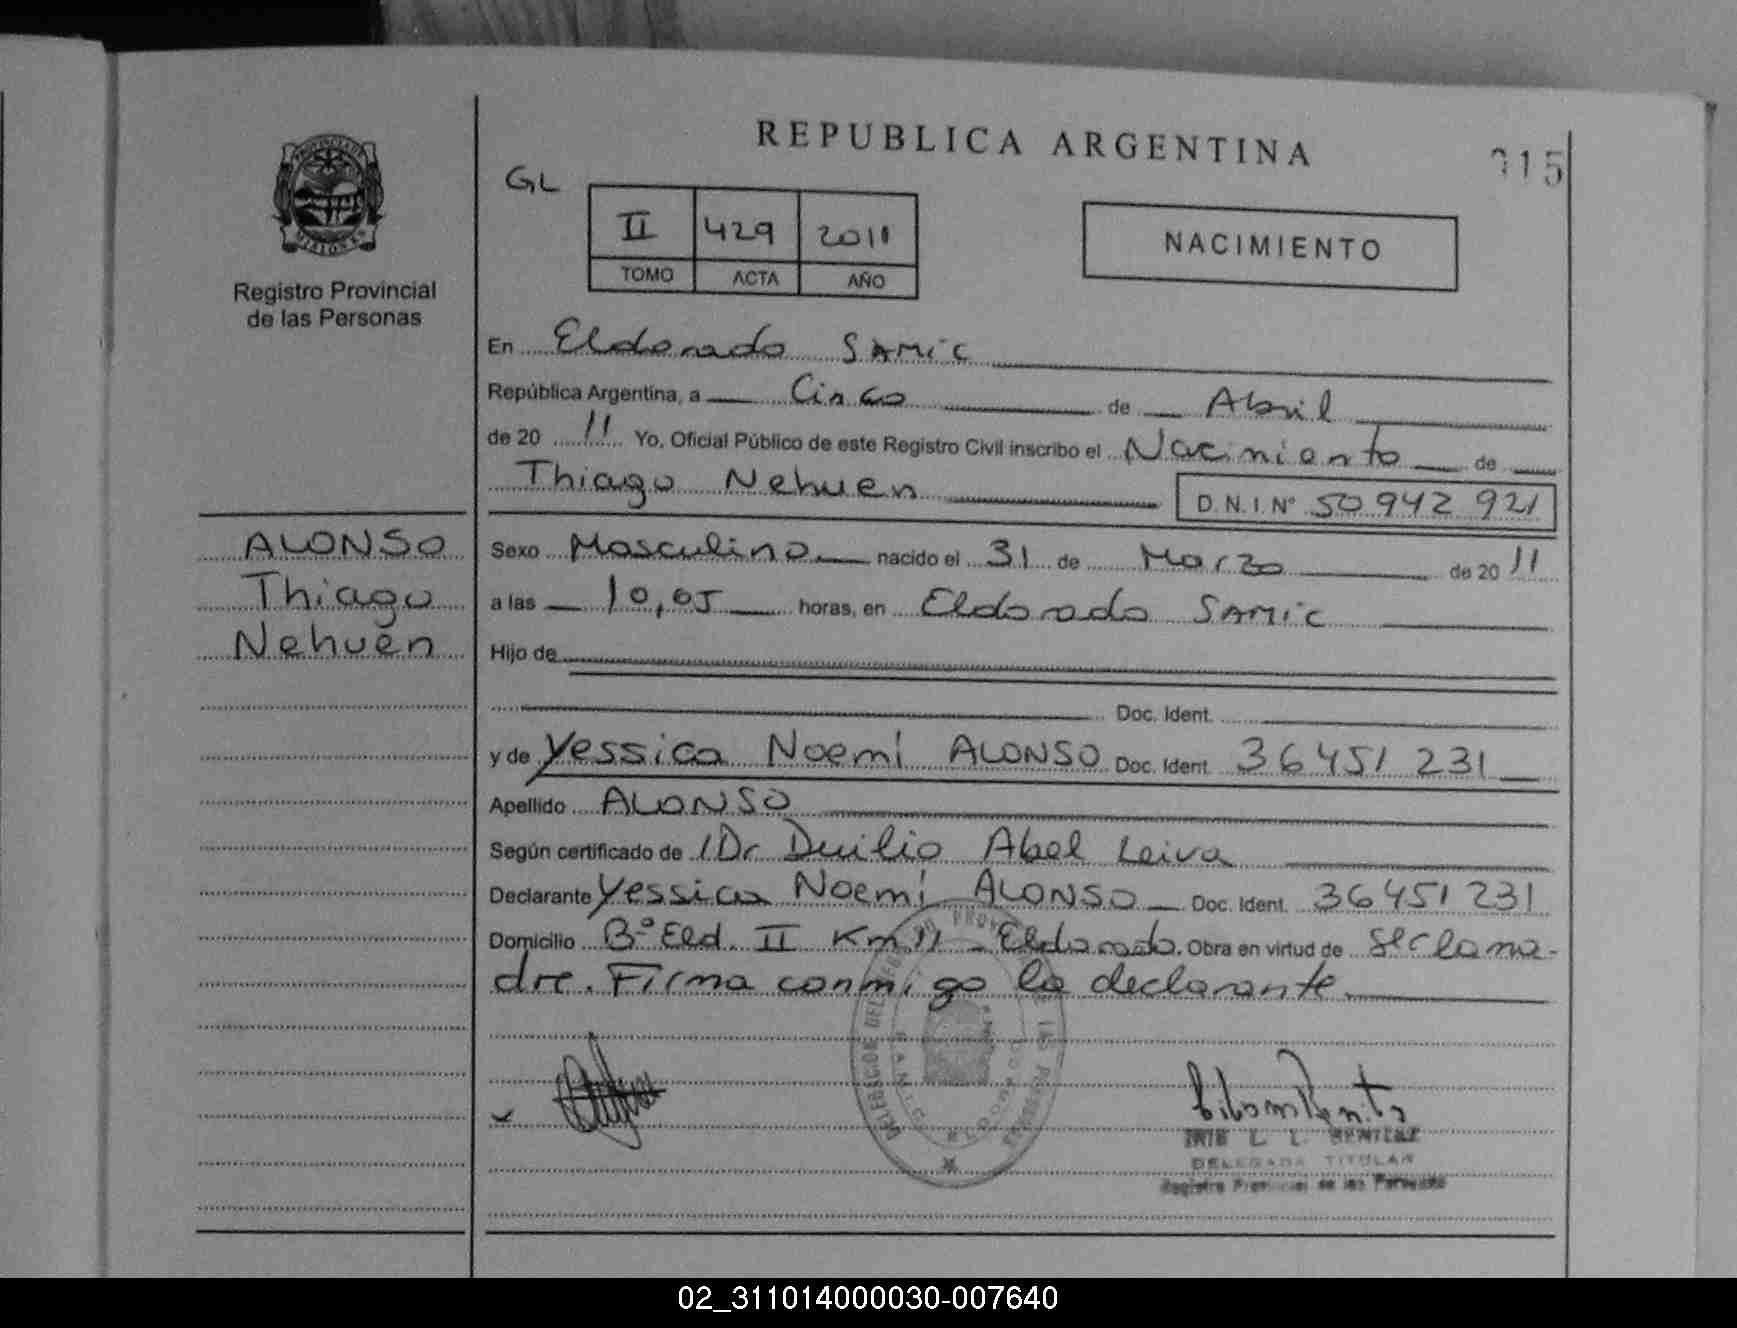 REPUBLICA ARGENTINA
315
GL
II 429 2011
TOMO ACTA AÑO
NACIMIENTO
PROVINCIA DE MISIONES
Registro Provincial
de las Personas
En Eldorado SAMIC
República Argentina, a Cinco de Abril
de 20 11 Yo, Oficial Público de este Registro Civil inscribo el Nacimiento de
Thiago Nehuen D.N.I.Nº 50 942 921
ALONSO
Thiago
Nehuén
Sexo Masculino nacido el 31 de Marzo de 20 11
a las 10,05 horas, en Eldorado SAMIC
Hijo de
Doc. Ident.
y de Yessica Noemí ALONSO Doc. Ident. 36 451 231
Apellido ALONSO
Según certificado de Dr Duilio Abel Leiva
Declarante Yessica Noemí ALONSO Doc. Ident. 36 451 231
Domicilio Bº Eld. II Km 11 - Eldorado. Obra en virtud de ser la ma-
dre. Firma conmigo la declarante.
BENITEZ
DELEGADA TITULAR
Registro Provincial de las Personas
02_311014000030-007640